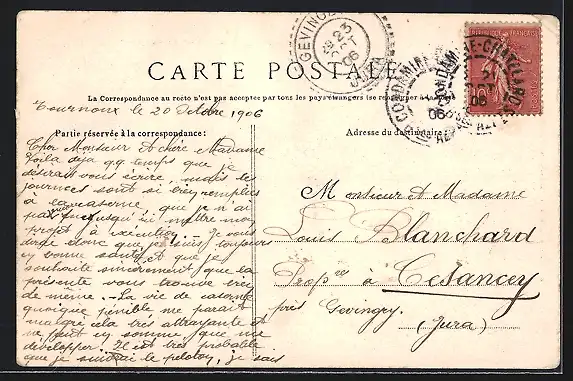 CARTE POSTALE
La Correspondance au recto n'est pas acceptée par tous les pays étrangers (se renseigner à la
Tournoux le 20 Octobre 1906
Partie réservée à la correspondance:
Adresse du destinataire:
Cher Monsieur & chère Madame
Voila déja q.q. temps que je
désirais vous écrire, mais les
journées sont si bien remplies
à la caserne, que je n'ai
pas pu jusqu'ici mettre mon
projet à exécution. — Je vous
dirai donc que je suis toujours
en bonne santé et que je
souhaite sincèrement que la
présente vous trouve très
de meme. — La vie de caserne
quoique penible me parait
malgré cela très attrayante et
ne peut en somme que me
developper. Il est très probable
que je suivrai le peloton, je sais
Monsieur & Madame
Louis Blanchard
Prop.re à Cesancey
près Gevingey.
(Jura)
GEVINGEY
23
OCT
06
JURA
CONDAMINE-CHATELARD
21
06